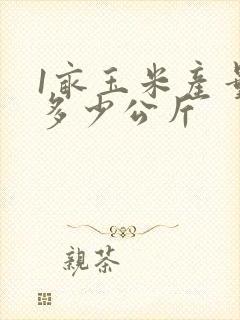 1亩玉米产量
多少公斤
親茶